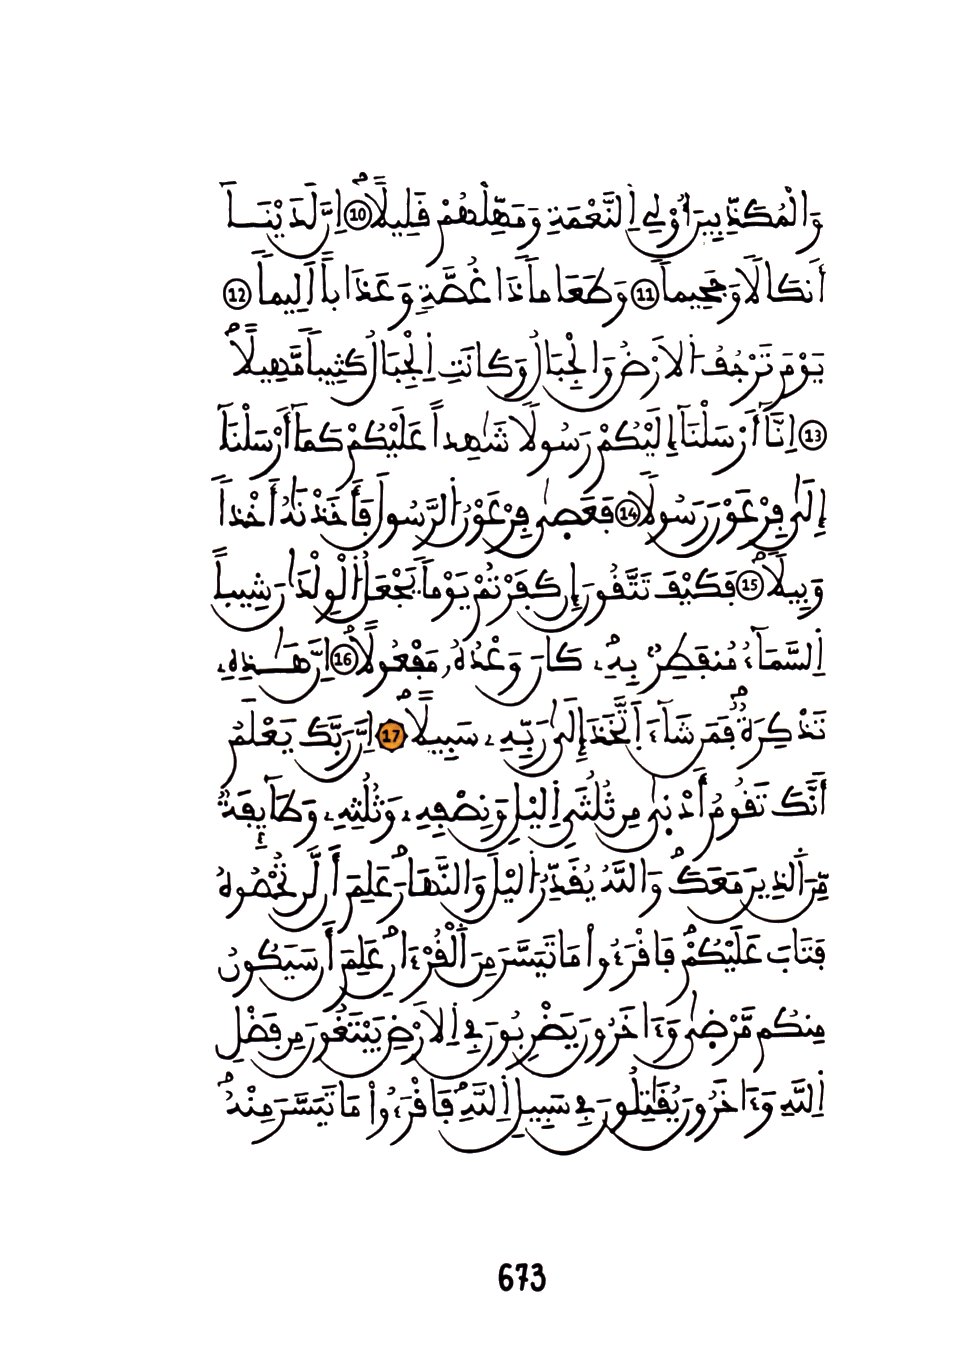 وَالْمُكَذِّبِينَ أُوْلِي اِ۬لنَّعْمَةِ وَمَهِّلْهُمْ قَلِيلًاۖ 10 اِنَّ لَدَيْنَآ
أَنكَالًا وَجَحِيماً 11 وَطَعَاماً ذَا غُصَّةٍ وَعَذَاباً اَلِيماً 12
يَوْمَ تَرْجُفُ اُ۬لَارْضُ وَالْجِبَالُ وَكَانَتِ اِ۬لْجِبَالُ كَثِيباً مَّهِيلًاۖ
13 اِنَّآ أَرْسَلْنَآ إِلَيْكُمْ رَسُولًا شَٰهِداً عَلَيْكُمْ كَمَآ أَرْسَلْنَآ
إِلَىٰ فِرْعَوْنَ رَسُولًا 14 فَعَصىٰ فِرْعَوْنُ اُ۬لرَّسُولَ فَأَخَذْنَٰهُ أَخْذاً
وَبِيلًاۖ 15 فَكَيْفَ تَتَّقُونَ إِن كَفَرْتُمْ يَوْماً يَجْعَلُ اُ۬لْوِلْدَٰنَ شِيباً
اِ۬لسَّمَآءُ مُنفَطِرٌۢ بِهِۦۖ كَانَ وَعْدُهُۥ مَفْعُولًاۖ 16 اِنَّ هَٰذِهِۦ
تَذْكِرَةٌۖ فَمَن شَآءَ اَ۪تَّخَذَ إِلَىٰ رَبِّهِۦ سَبِيلًاۖ 17 اِنَّ رَبَّكَ يَعْلَمُ
أَنَّكَ تَقُومُ أَدْنىٰ مِن ثُلُثَيِ اِ۬ليْلِ وَنِصْفِهِۦ وَثُلُثِهِۦ وَطَآئِفَةٌ
مِّنَ اَ۬لذِينَ مَعَكَۖ وَاللَّهُ يُقَدِّرُ اُ۬ليْلَ وَالنَّهَارَۖ عَلِمَ أَن لَّن تُحْصُوهُ
فَتَابَ عَلَيْكُمْۖ فَاقْرَءُواْ مَا تَيَسَّرَ مِنَ اَ۬لْقُرْءَانِۖ عَلِمَ أَن سَيَكُونُ
مِنكُم مَّرْضىٰ وَءَاخَرُونَ يَضْرِبُونَ فِي اِ۬لَارْضِ يَبْتَغُونَ مِن فَضْلِ
اِ۬للَّهِ وَءَاخَرُونَ يُقَٰتِلُونَ فِي سَبِيلِ اِ۬للَّهِۖ فَاقْرَءُواْ مَا تَيَسَّرَ مِنْهُۖ
673